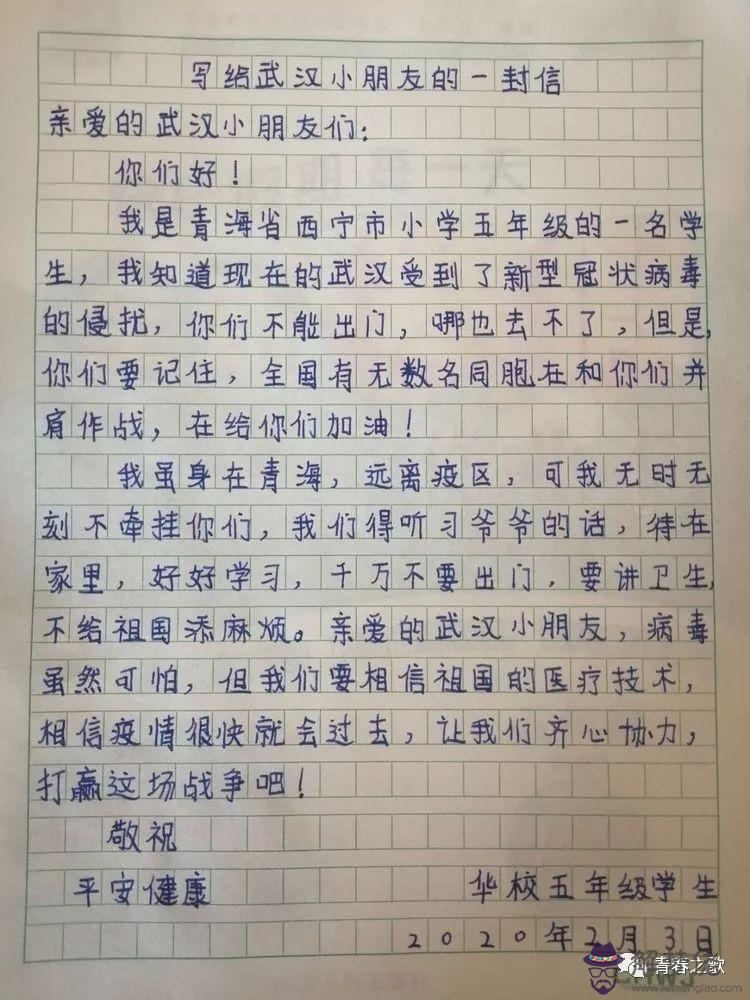 写给武汉小朋友的一封信
亲爱的武汉小朋友们:
你们好!
我是青海省西宁市小学五年级的一名学
生,我知道现在的武汉受到了新型冠状病毒
的侵扰,你们不能出门,哪也去不了,但是,
你们要记住,全国有无数名同胞在和你们并
肩作战,在给你们加油!
我虽身在青海,远离疫区,可我无时无
刻不牵挂你们,我们得听习爷爷的话,待在
家里,好好学习,千万不要出门,要讲卫生,
不给祖国添麻烦。亲爱的武汉小朋友,病毒
虽然可怕,但我们要相信祖国的医疗技术,
相信疫情很快就会过去,让我们齐心协力,
打赢这场战争吧!
敬祝
平安健康 华校五年级学生
2020年2月3日
青春之歌
www.jiemenglao.com